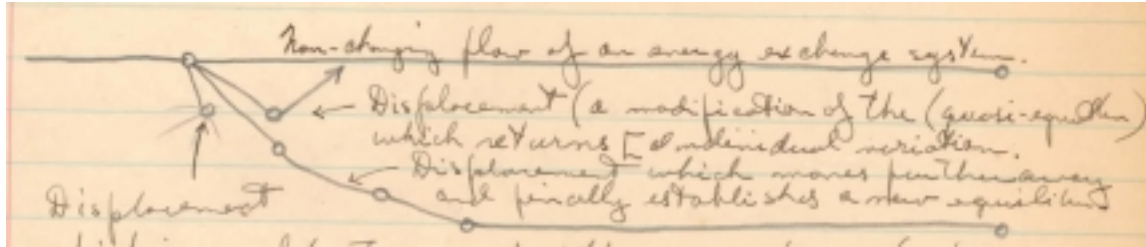 Non-changing flow of an energy exchange system.
← Displacement (a modification of the (quasi-equilibrium)
which returns [ individual variation.
← Displacement which moves further away
Displacement and finally establishes a new equilibrium